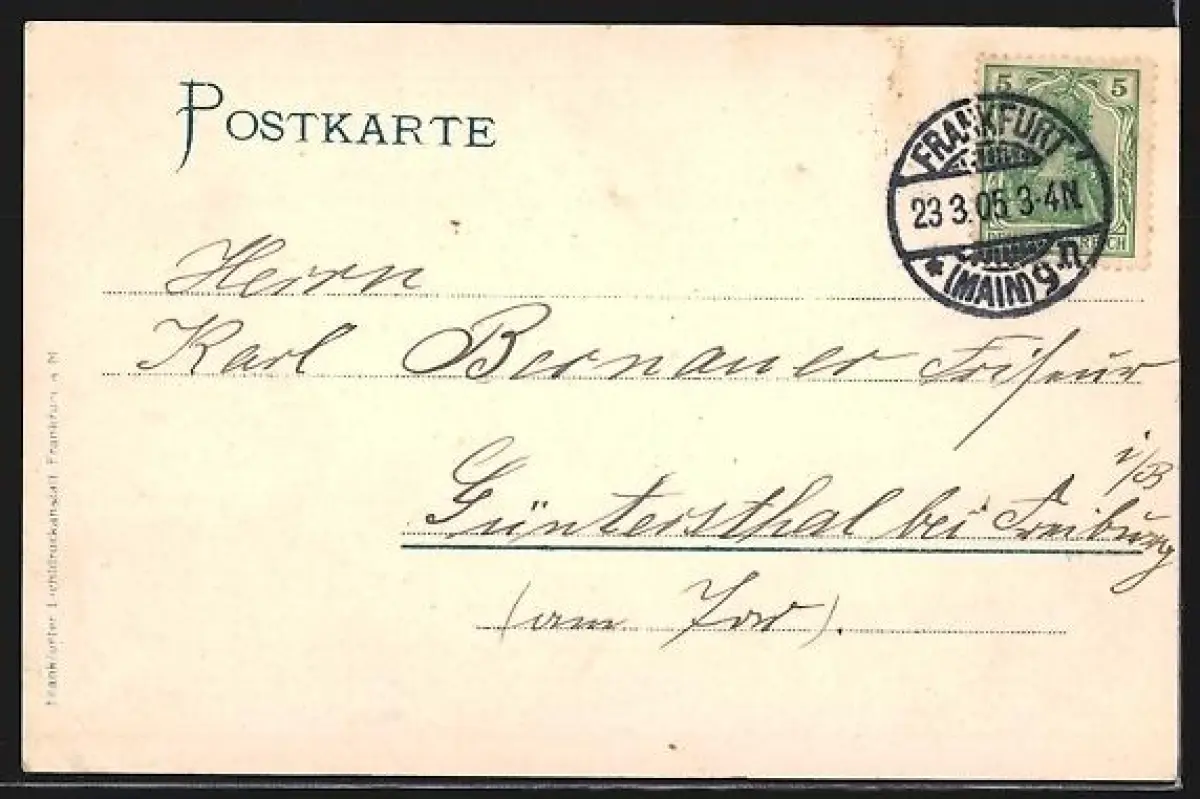 POSTKARTE
5 5
FRANKFURT
23 3.05 3-4N.
* (MAIN) 9.n
REICH
Herrn
Karl Bernauer Friseur
i/B
Güntersthal bei Freiburg
(am
Frankfurter Lichtdruckanstalt Frankfurt a M